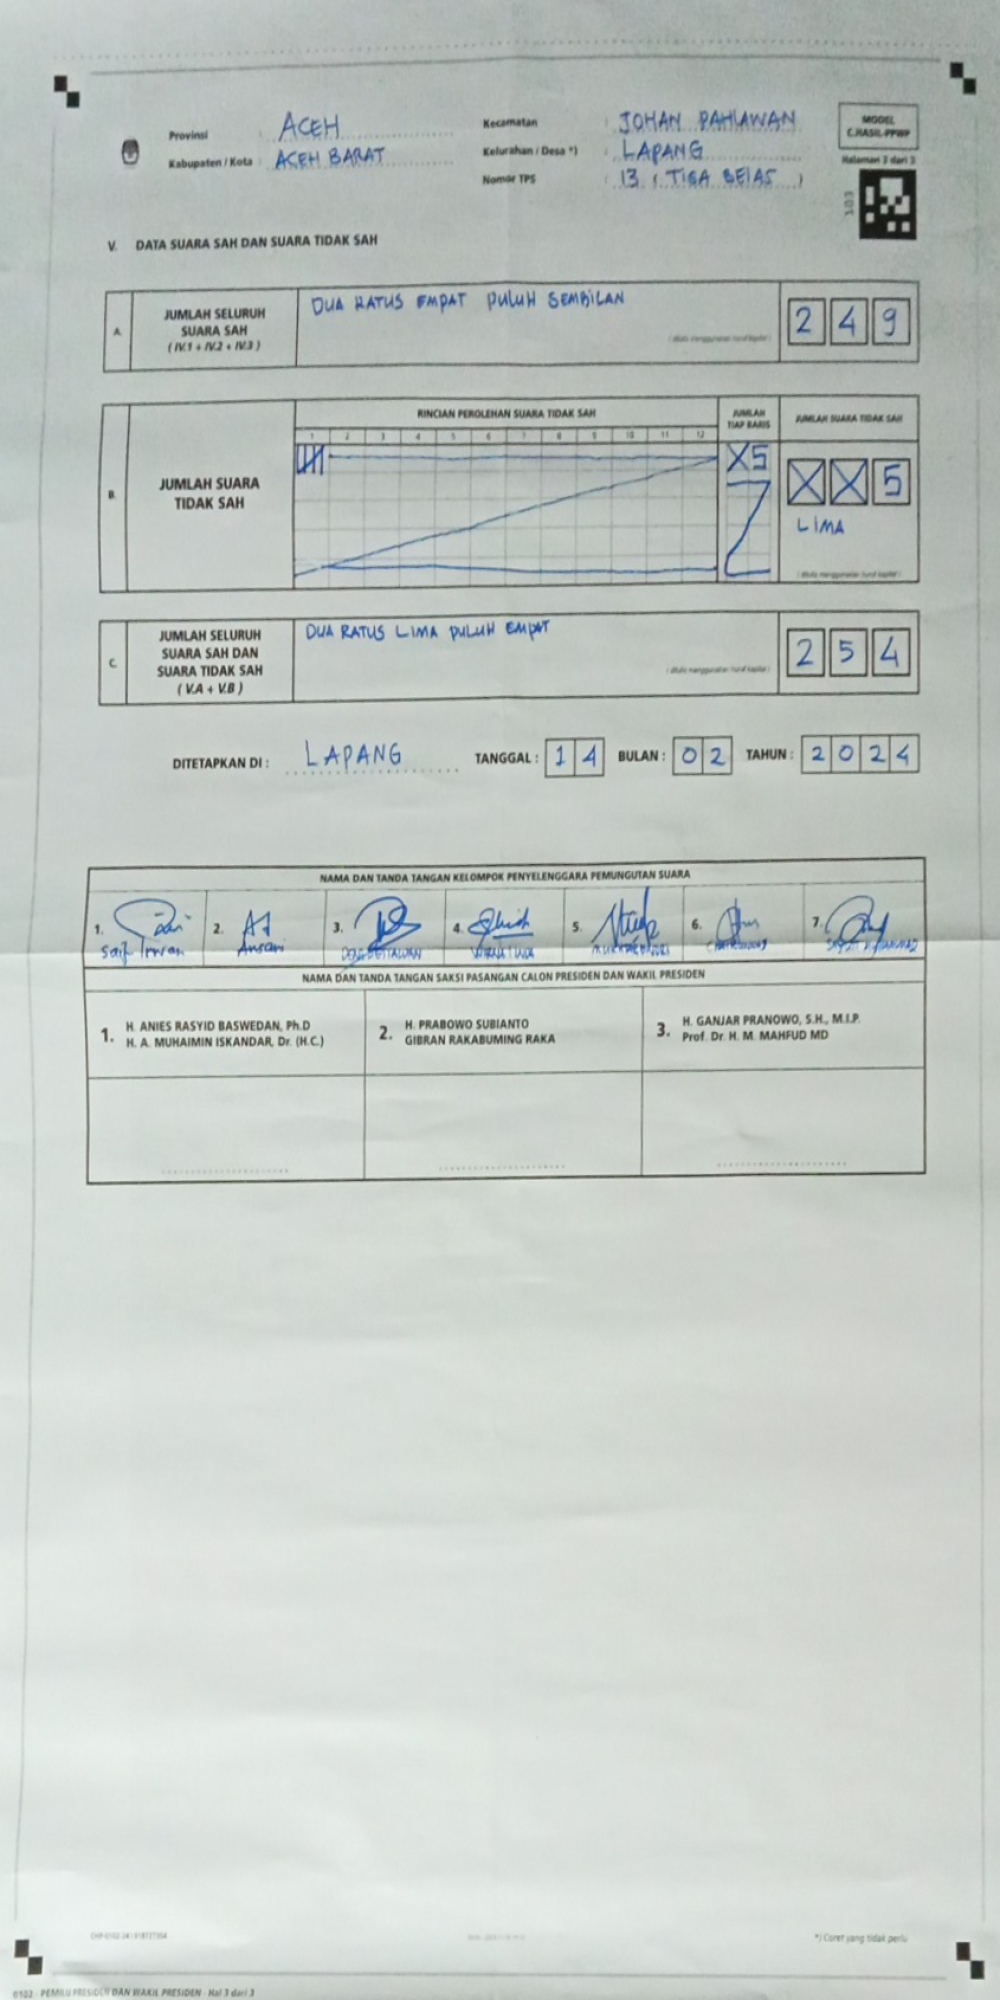 Provinsi : ACEH
Kabupaten / Kota : ACEH BARAT
Kecamatan : JOHAN PAHLAWAN
Kelurahan / Desa *) : LAPANG
Nomor TPS : 13 ( TIGA BELAS )
MODEL
C.HASIL-PPWP
Halaman 3 dari 3
103
V. DATA SUARA SAH DAN SUARA TIDAK SAH
A. JUMLAH SELURUH SUARA SAH ( IV.1 + IV.2 + IV.3 )
DUA RATUS EMPAT PULUH SEMBILAN
( ditulis menggunakan huruf kapital )
2 4 9
B. JUMLAH SUARA TIDAK SAH
RINCIAN PEROLEHAN SUARA TIDAK SAH
1 2 3 4 5 6 7 8 9 10 11 12
JUMLAH TIAP BARIS
X5
JUMLAH SUARA TIDAK SAH
X X 5
LIMA
( ditulis menggunakan huruf kapital )
C. JUMLAH SELURUH SUARA SAH DAN SUARA TIDAK SAH ( V.A + V.B )
DUA RATUS LIMA PULUH EMPAT
( ditulis menggunakan huruf kapital )
2 5 4
DITETAPKAN DI : LAPANG TANGGAL : 1 4 BULAN : 0 2 TAHUN : 2 0 2 4
NAMA DAN TANDA TANGAN KELOMPOK PENYELENGGARA PEMUNGUTAN SUARA
1. Saif Imran
2. Ansari
3.
4.
5.
6.
7.
NAMA DAN TANDA TANGAN SAKSI PASANGAN CALON PRESIDEN DAN WAKIL PRESIDEN
1. H. ANIES RASYID BASWEDAN, Ph.D
H. A. MUHAIMIN ISKANDAR, Dr. (H.C.)
2. H. PRABOWO SUBIANTO
GIBRAN RAKABUMING RAKA
3. H. GANJAR PRANOWO, S.H., M.I.P.
Prof. Dr. H. M. MAHFUD MD
*) Coret yang tidak perlu
0102 - PEMILU PRESIDEN DAN WAKIL PRESIDEN - Hal 3 dari 3